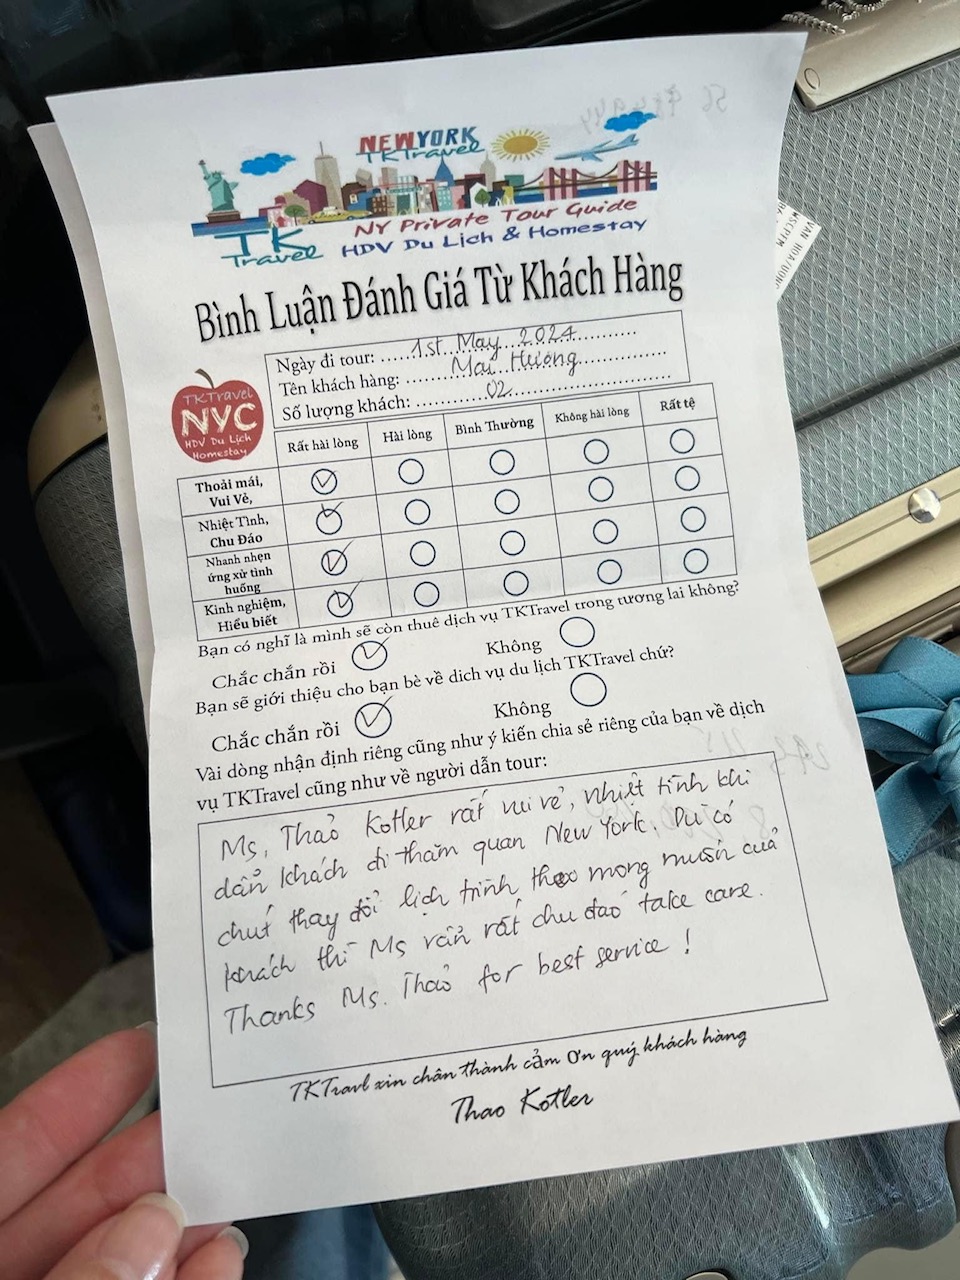 NEWYORK
TKTravel
NY Private Tour Guide
TK Travel
HDV Du Lịch & Homestay
Bình Luận Đánh Giá Từ Khách Hàng
Ngày đi tour: 1st May 2024
Tên khách hàng: Mai Hương
Số lượng khách: 02
TKTravel
NYC
HDV Du Lịch
Homestay
Rất hài lòng Hài lòng Bình Thường Không hài lòng Rất tệ
Thoải mái,
Vui Vẻ,
Nhiệt Tình,
Chu Đáo
Nhanh nhẹn
ứng xử tình
huống
Kinh nghiệm,
Hiểu biết
Bạn có nghĩ là mình sẽ còn thuê dịch vụ TKTravel trong tương lai không?
Chắc chắn rồi Không
Bạn sẽ giới thiệu cho bạn bè về dich vụ du lịch TKTravel chứ?
Chắc chắn rồi Không
Vài dòng nhận định riêng cũng như ý kiến chia sẻ riêng của bạn về dịch
vụ TKTravel cũng như về người dẫn tour:
Ms, Thảo Kotler rất vui vẻ, nhiệt tình khi
dẫn khách đi thăm quan New York. Dù có
chút thay đổi lịch trình theo mong muốn của
khách thì Ms vẫn rất chu đáo take care.
Thanks Ms. Thảo for best service!
TKTravl xin chân thành cảm ơn quý khách hàng
Thao Kotler
VAN HOA/UONG